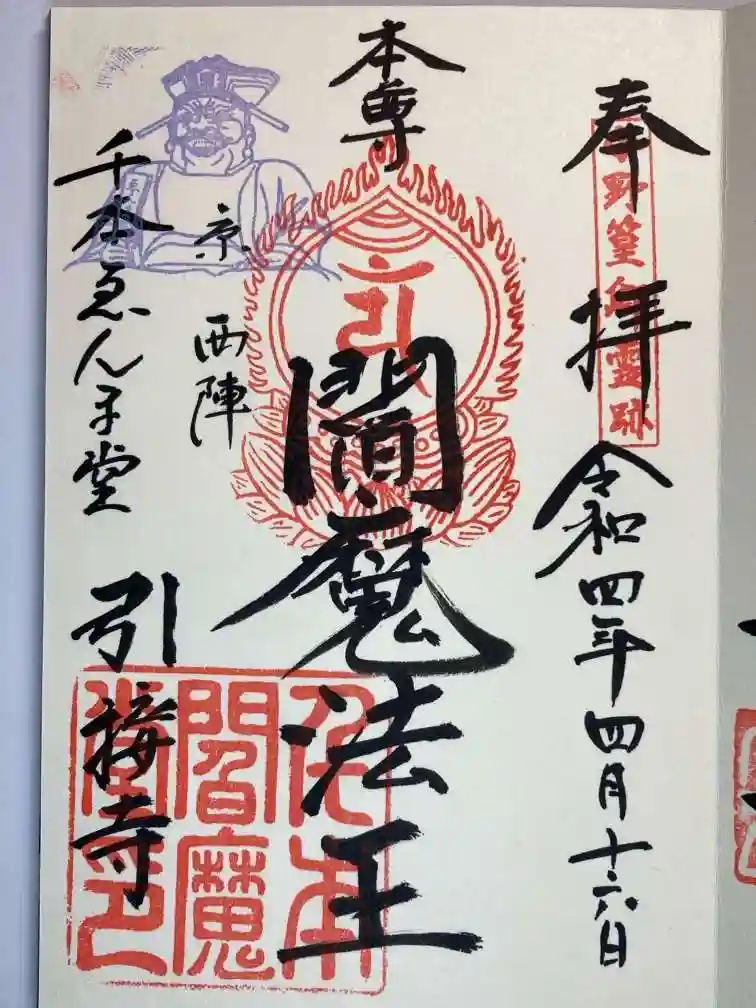 奉拝
令和四年四月十六日
小野篁卿霊跡
本尊
閻魔法王
京
西陣
千本ゑんま堂
引接寺
千本
閻魔
堂印